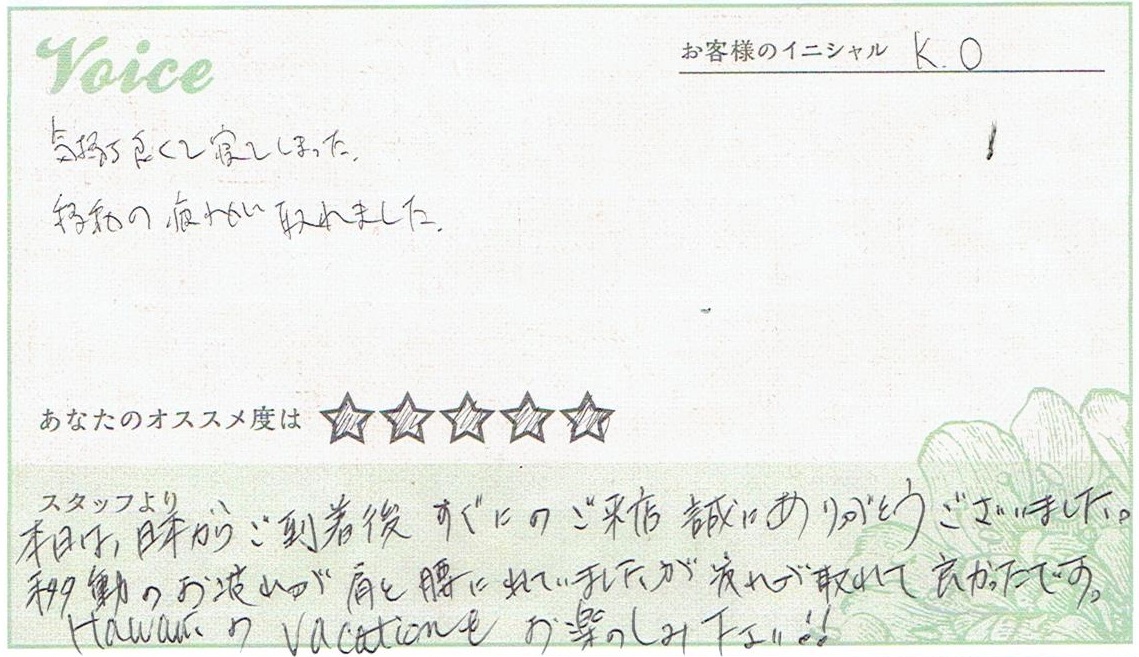 Voice
お客様のイニシャル K.O
気持ち良くて寝てしまった.
移動の疲れが取れました.
あなたのオススメ度は ☆☆☆☆☆
スタッフより
本日は、日本からご到着後すぐにのご来店誠にありがとうございました。
移動のお疲れが肩と腰にでていましたが疲れが取れて良かったです。
Hawaiiの Vacationをお楽しみ下さい!!